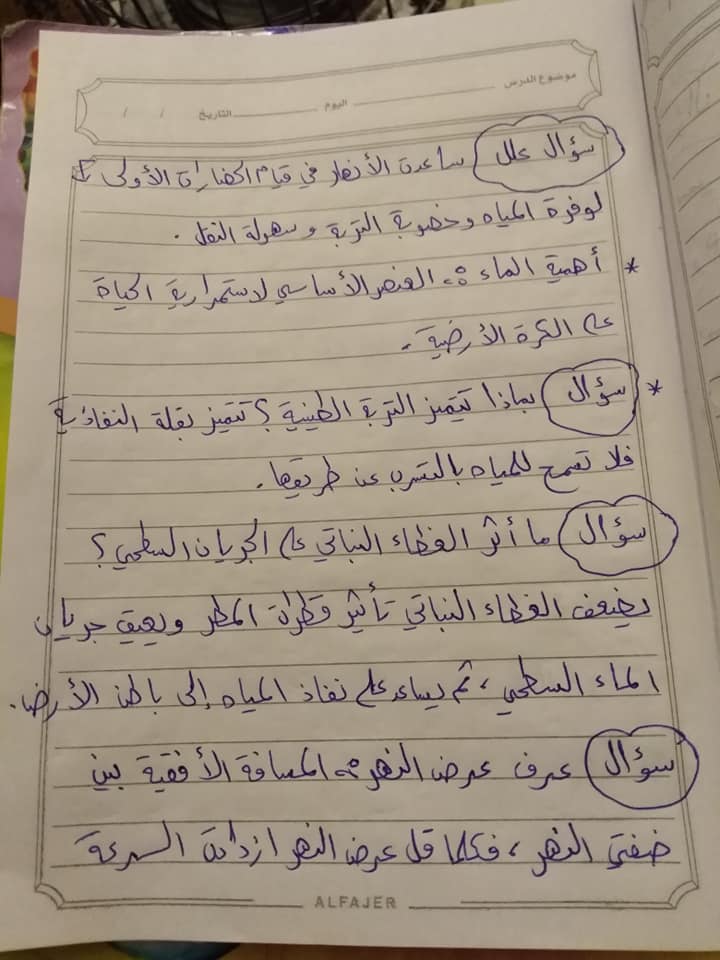 موضوع الدرس
اليوم
التاريخ / /
سؤال علل ساعدت الأنهار في قيام الحضارات الأولى ؟
لوفرة المياه وخصوبة التربة وسهولة النقل .
* أهمية الماء : العنصر الأساسي لاستمرارية الحياة
على الكرة الأرضية .
* سؤال بماذا تتميز التربة الطينية ؟ تتميز بقلة النفاذية
فلا تسمح للمياه بالتسرب عن طريقها .
سؤال ما أثر الغطاء النباتي على الجريان السطحي ؟
يضعف الغطاء النباتي تأثير قطرات المطر ويعيق جريان
الماء السطحي ، ثم يساعد على نفاذ المياه إلى باطن الأرض .
سؤال عرف عرض النهر : المسافة الأفقية بين
ضفتي النهر ، فكلما قل عرض النهر ازدادت السرعة
ALFAJER